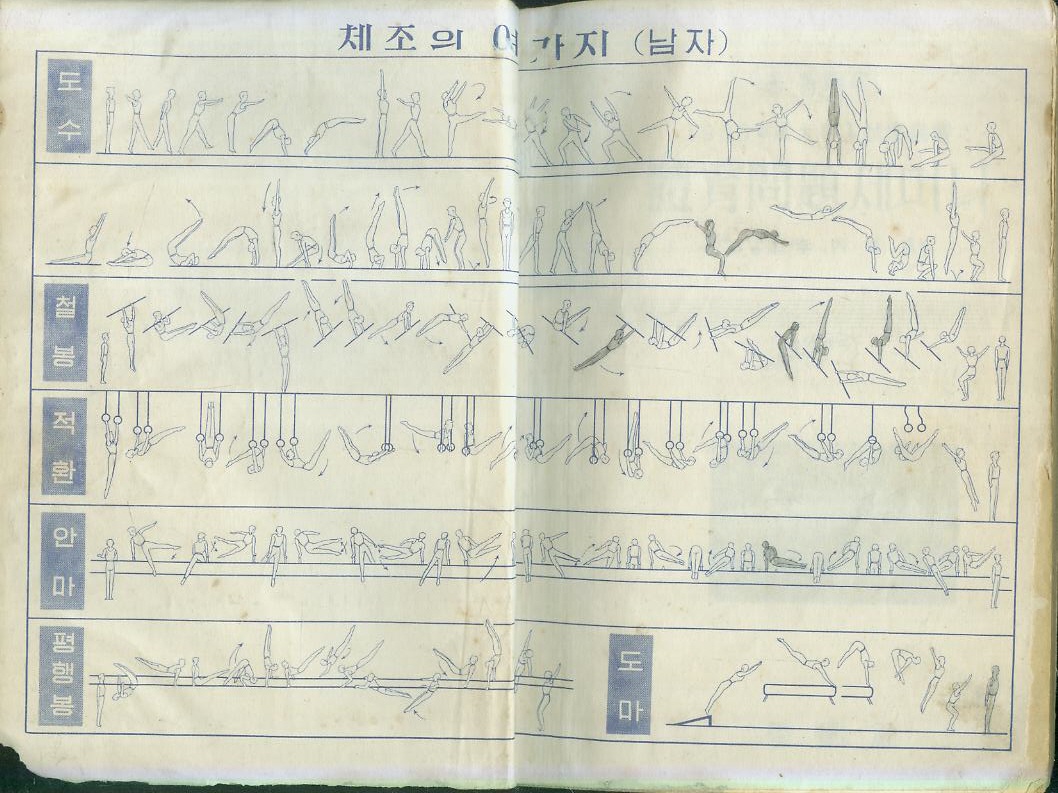 체조의 여가지 (남자)
도수
철봉
적환
안마
평행봉
도마